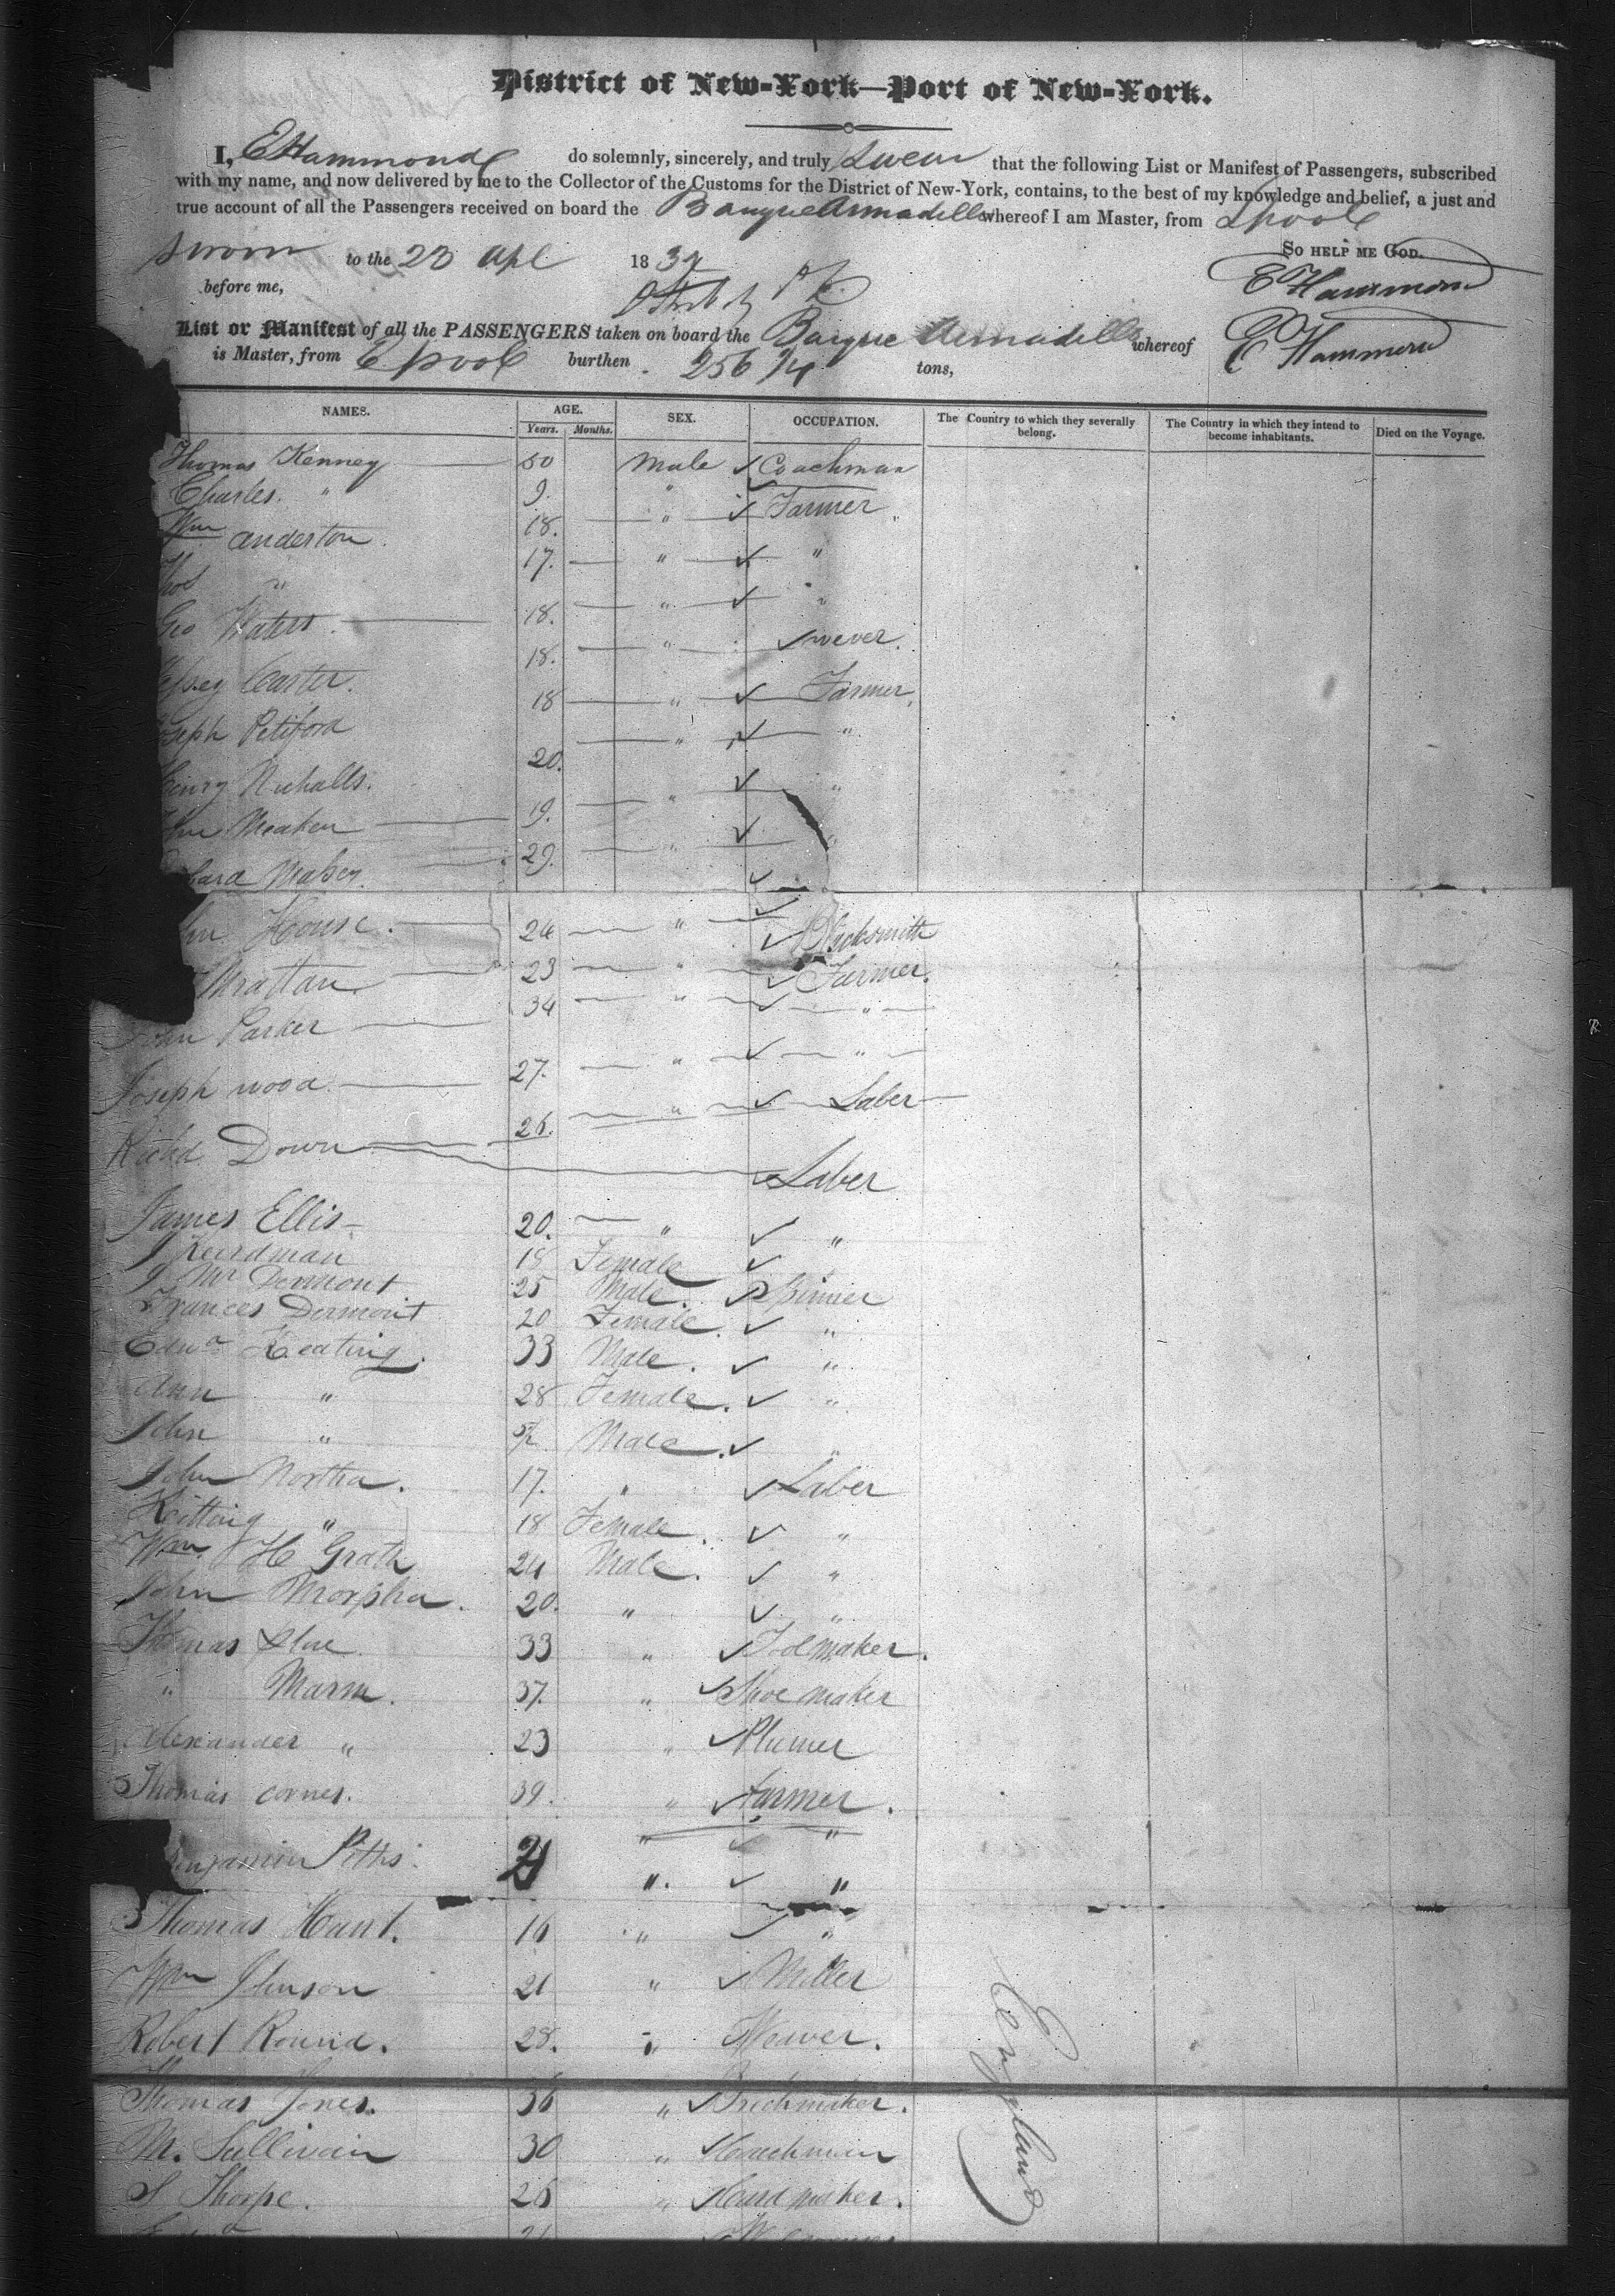 District of New-York—Port of New-York.
I, E Hammond do solemnly, sincerely, and truly Swear that the following List or Manifest of Passengers, subscribed
with my name, and now delivered by me to the Collector of the Customs for the District of New-York, contains, to the best of my knowledge and belief, a just and
true account of all the Passengers received on board the Barque Armadello whereof I am Master, from Lpool
Sworn to the 23 Apl 183 So help me God.
before me, E Hammond
List or Manifest of all the PASSENGERS taken on board the Barque Armadello whereof E Hammond
is Master, from Lpool burthen 256 tons,
NAMES. AGE. SEX. OCCUPATION. The Country to which they severally belong. The Country in which they intend to become inhabitants. Died on the Voyage.
Years. Months.
Thomas Kenney 50 Male Coachman
Charles " 9. "
Wm Anderton 18. " Farmer
" 17. " "
Geo Waters 18. " "
Carter. 18. " wever.
Joseph Petiford 18 " Farmer.
Henry Nicholls. 20. " "
Meaken 19. " "
29. "
House. 24 " Blacksmith
Mrattan 23 " Farmer.
John Parker 34 " "
Joseph Wood 27. " "
Richd Down 26. " Laber
Laber
James Ellis 20. " "
18 Female
J Mc Dermont 25 Male. Spinner
Frances Dermont 20 Female. "
Edwd Keating. 33 Male. "
Ann " 28 Female. "
John " Male. "
John Northa. 17. " Laber
Kitting " 18 Female. "
Wm H Grath 24 Male. "
John Morpha. 20. " "
Thomas 33 " Toolmaker.
" Marm. 37. " Shoe maker
Alexander " 23 " Plumer
Thomas Cornes. 39. " Farmer.
Benjamin Pitts. 21 " "
Thomas Hunt. 16 " "
Wm Jhnson 21 " Miller
Robert Round. 28. " Weaver.
Thomas Jones. 36 " Brickmaker.
M. Sullivain 30 " Coachman
S Thorpe. 26 "
England